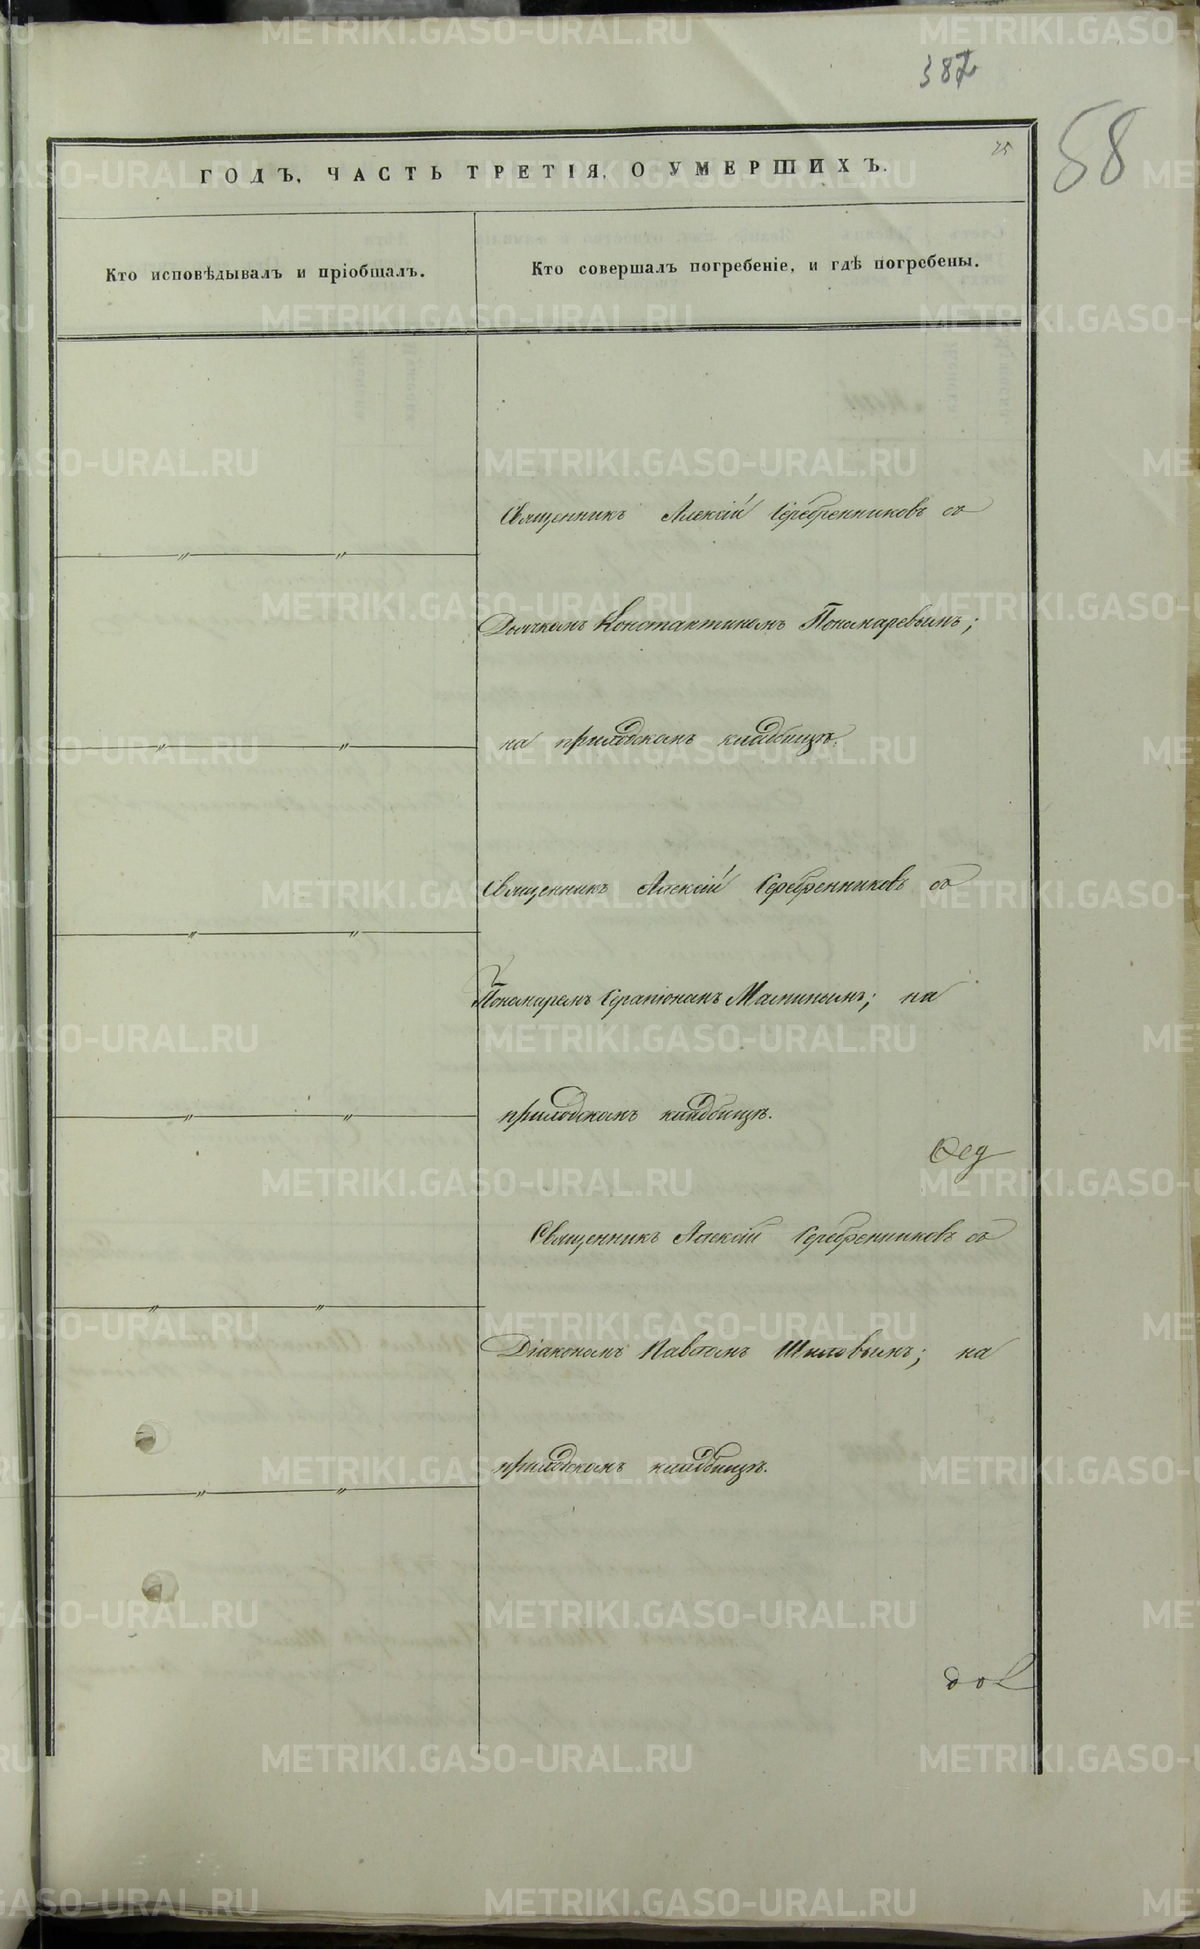 387
25
58
ГОДЪ, ЧАСТЬ ТРЕТІЯ, О УМЕРШИХЪ.
Кто исповѣдывалъ и пріобщалъ.
Кто совершалъ погребеніе, и гдѣ погребены.
Священникъ Алексій Серебренниковъ съ
Дьячкомъ Константиномъ Пономаревымъ;
на приходскомъ кладбищѣ.
Священникъ Алексій Серебренниковъ съ
Пономаремъ Серапіономъ Маминымъ; на
приходскомъ кладбищѣ.
Священникъ Алексій Серебренниковъ съ
Діакономъ Павломъ Шиловымъ; на
приходскомъ кладбищѣ.
METRIKI.GASO-URAL.RU